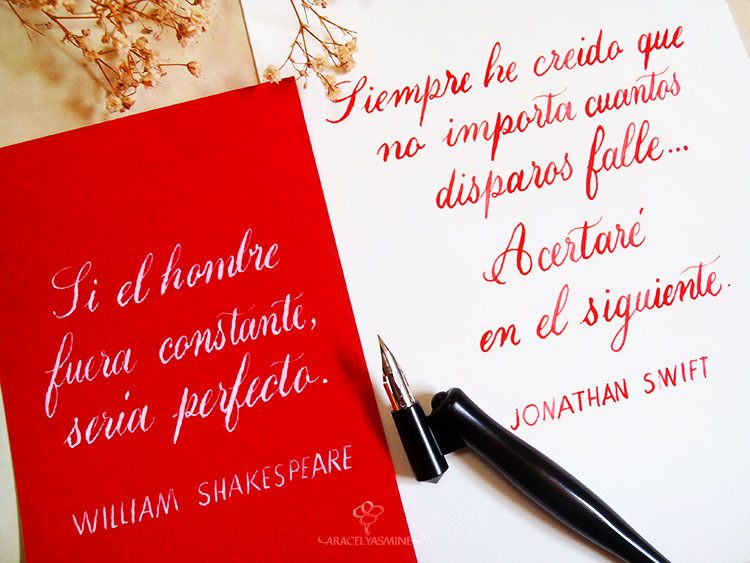 Si el hombre
fuera constante,
seria perfecto.
WILLIAM SHAKESPEARE
Siempre he creido que
no importa cuantos
disparos falle...
Acertaré
en el siguiente.
JONATHAN SWIFT
ARACELYASMINE